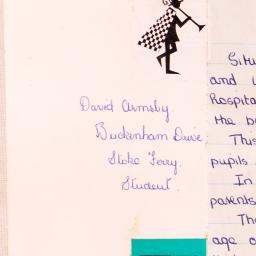 David Armsby
Buckenham Drive
Stoke Ferry.
Student.
Situ
and u
Hospita
the b
This
pupils
In
parents
The
age o